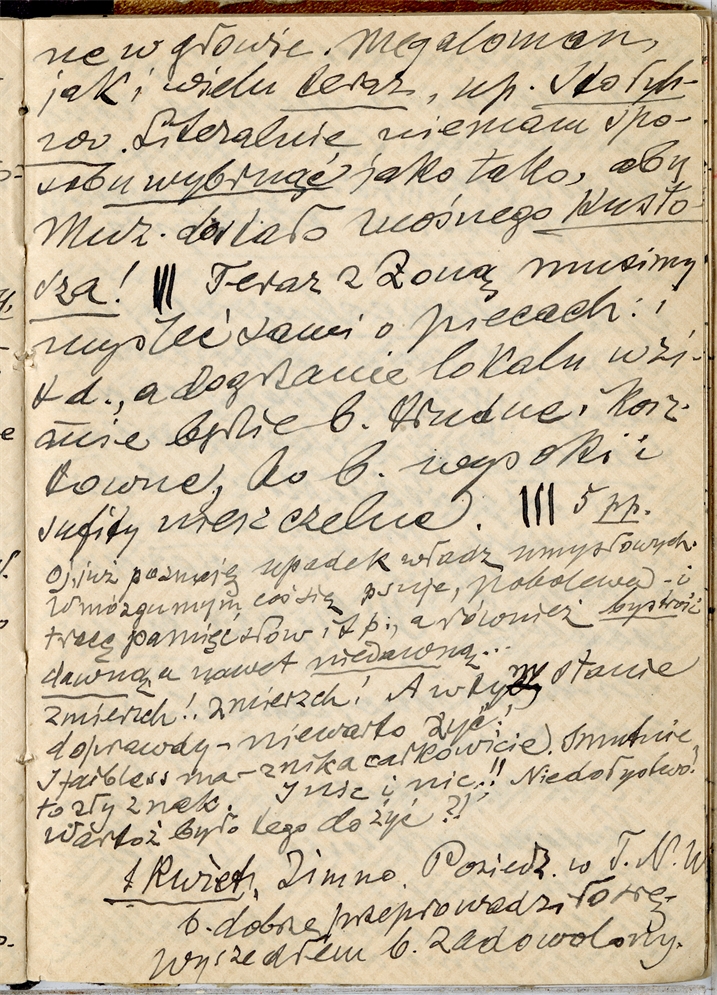 ne w głowie. Megaloman,
jak i wielu teraz, np. Stołyh-
wo. Literalnie niemam spo-
sobu wybrnąć jako tako, aby
Muz. dostało znośnego Kusto-
sza! ||| Teraz z Żoną musimy
myśleć sami o piecach i
t d., a dogrzanie lokalu w zi-
mie będzie b. trudne i kosz-
towne, bo b. wysoki i
sufity nieszczelne. ||| 5 pp.
Oj, już poznaję upadek władz umysłowych.
W mózgu mym coś się psuje, pobolewa - i
tracę pamięć słów i t p., a również bystrość
dawną a nawet niedawną...
zmierzch!. zmierzch! A w tym stanie
doprawdy - niewarto żyć!,
ma - znika całkowicie. Smutnie,
to zły znak. I nic i nic!! Niedołęstwo!
Wartoż było tego dożyć?!
1 Kwiet. Zimno. Posiedz. w T. N. W
b. dobrze przeprowadziło się -
wyszedłem b. zadowolony.